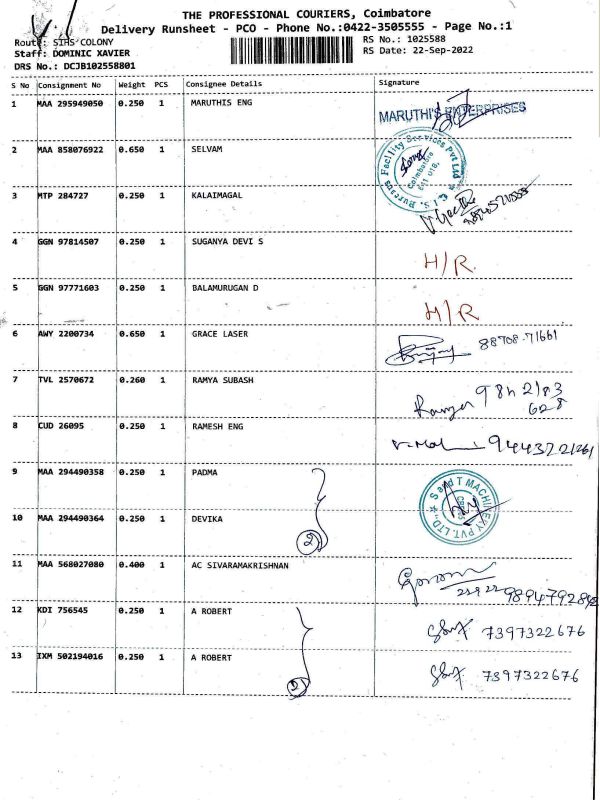 THE PROFESSIONAL COURIERS, Coimbatore
Delivery Runsheet - PCO - Phone No.:0422-3505555 - Page No.:1
Route: SIHS COLONY
RS No.: 1025588
Staff: DOMINIC XAVIER
RS Date: 22-Sep-2022
DRS No.: DCJB102558801
S No Consignment No Weight PCS Consignee Details Signature
1 MAA 295949050 0.250 1 MARUTHIS ENG MARUTHI'S ENTERPRISES
2 MAA 858076922 0.650 1 SELVAM
Bureaus Facility Services Pvt Ltd
Coimbatore
3 MTP 284727 0.250 1 KALAIMAGAL
4 GGN 97814507 0.250 1 SUGANYA DEVI S H/R.
5 GGN 97771603 0.250 1 BALAMURUGAN D H/R
6 AWY 2200734 0.650 1 GRACE LASER 88708-71661
7 TVL 2570672 0.260 1 RAMYA SUBASH
628
8 CUD 26095 0.250 1 RAMESH ENG
9 MAA 294490358 0.250 1 PADMA
S and T MACHINERY PVT. LTD.,
10 MAA 294490364 0.250 1 DEVIKA 2
11 MAA 568027080 0.400 1 AC SIVARAMAKRISHNAN
9894792892
12 KDI 756545 0.250 1 A ROBERT 7397322676
13 IXM 502194016 0.250 1 A ROBERT 2 7397322676